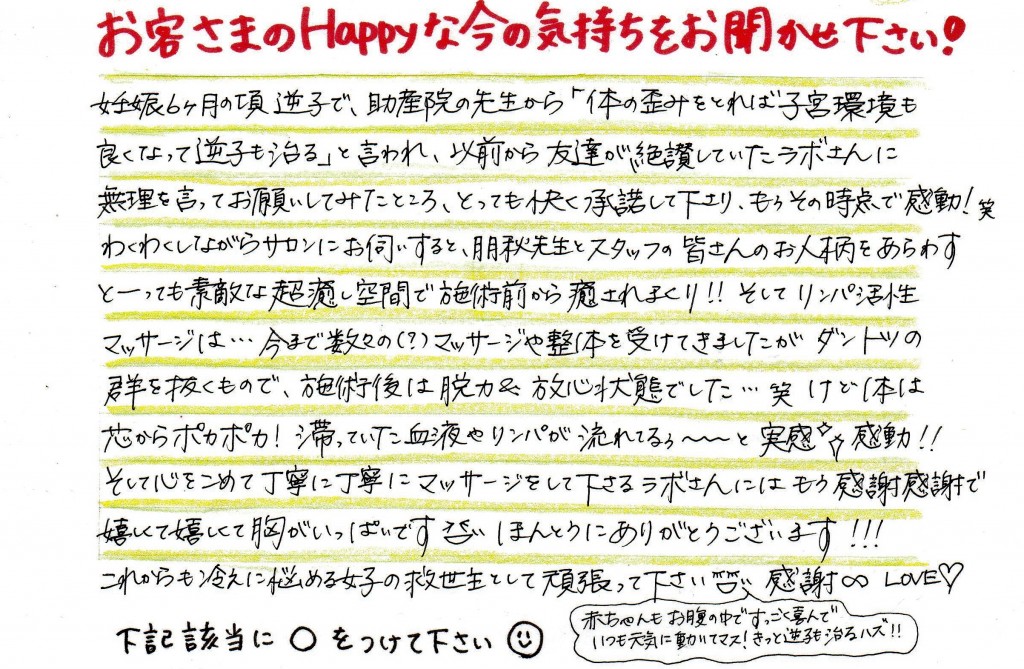 お客さまのHappyな今の気持ちをお聞かせ下さい!
妊娠6ヶ月の頃 逆子で、助産院の先生から「体の歪みをとれば子宮環境も
良くなって逆子も治る」と言われ、以前から友達が絶讃していたラボさんに
無理を言ってお願いしてみたところ、とっても快く承諾して下さり、もぅその時点で感動!笑
わくわくしながらサロンにお伺いすると、朋秋先生とスタッフの皆さんのお人柄をあらわす
と一っても素敵な超癒し空間で施術前から癒されまくり!! そしてリンパ活性
マッサージは… 今まで数々の(?)マッサージや整体を受けてきましたが ダントツの
群を抜くもので、施術後は脱力& 放心状態でした… 笑 けど体は
芯からポカポカ! 滞っていた血液やリンパが流れてるぅ〜〜と実感 感動!!
そして心をこめて丁寧に丁寧にマッサージをして下さるラボさんには もぅ感謝感謝で
嬉しくて嬉しくて胸がいっぱいです ほんとうにありがとうございます!!!
これからも冷えに悩める女子の救世主として頑張って下さい 感謝∞ LOVE♡
赤ちゃんもお腹の中ですっごく喜んで
いつも元気に動いてマス!きっと逆子も治るハズ!!
下記該当に ○ をつけて下さい